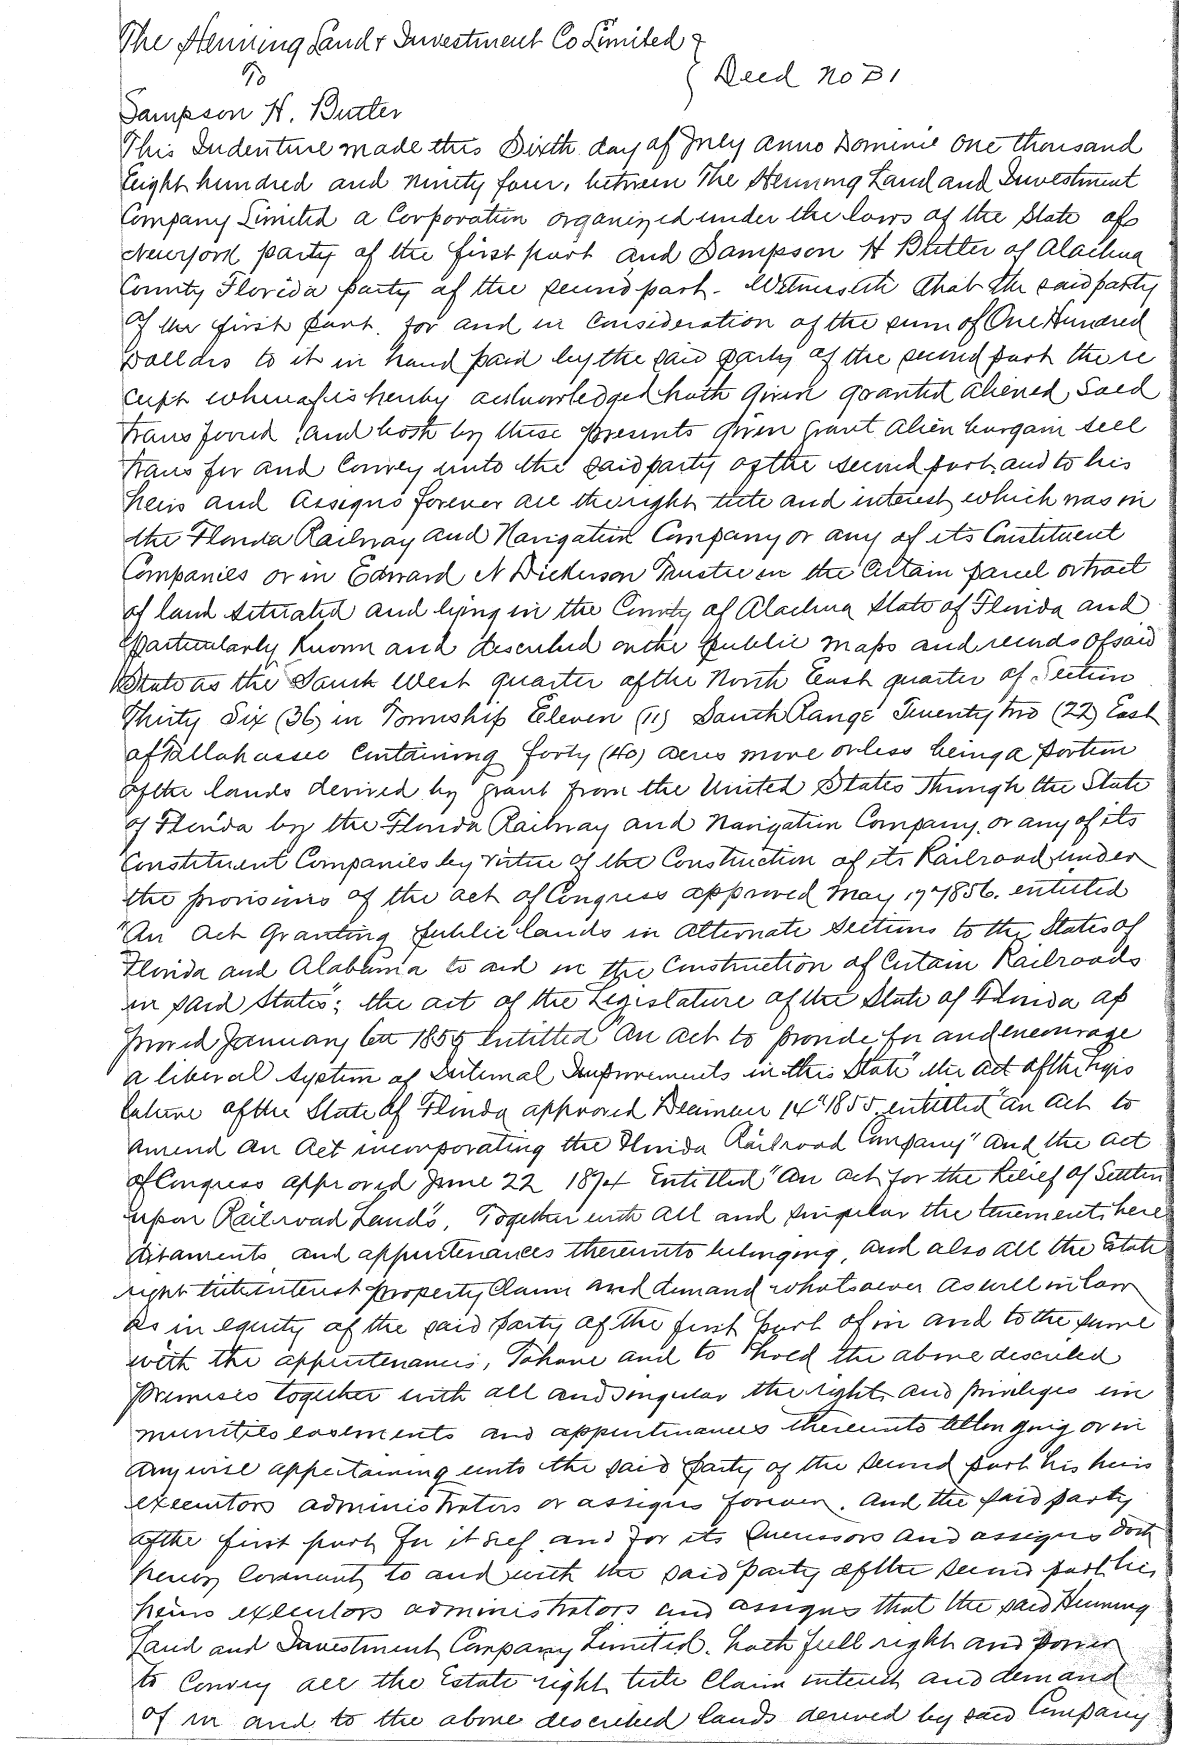 The Henning Land & Investment Co Limited
To
Deed No B1
Sampson H. Butler
This Indenture made this Sixth day of July anno Dominie One thousand
Eight hundred and ninety four, between The Henning Land and Investment
Company Limited a Corporation organized under the laws of the State of
Newyork party of the first part and Sampson H Butler of Alachua
County Florida party of the second part. Witnesseth that the said party
of the first part. for and in consideration of the sum of One Hundred
Dollars to it in hand paid by the said party of the second part the re
ceipt whereof is hereby acknowledged hath given granted aliened, Sold
transferred and doth by these presents given grant alien bargain sell
transfer and Convey unto the said party of the second part, and to his
heirs and assigns forever all the right title and interest which was in
the Florida Railway and Navigation Company or any of its Constituent
Companies or in Edward N Dickerson Trustee in the Certain parcel or tract
of land situated and lying in the County of Alachua State of Florida and
particularly known and described on the public maps and records of said
State as the South West quarter of the North East quarter of Section
Thirty Six (36) in Township Eleven (11) South Range Twenty two (22) East
of Tallahassee Containing forty (40) acres more or less being a portion
of the lands derived by grant from the United States Through the State
of Florida by the Florida Railway and Navigation Company, or any of its
Constituent Companies by virtue of the Construction of its Railroad under
the provisions of the act of Congress approved May 17" 1856. entitled
"An act Granting public lands in alternate sections to the States of
Florida and Alabama to aid in the Construction of Certain Railroads
in said States"; the act of the Legislature of the State of Florida ap
proved January 6th 1855 entitled "An act to provide for and encourage
a liberal system of Internal Improvements in this State" the act of the Legis
lature of the State of Florida approved December 14" 1855. entitled "an act to
amend an act incorporating the Florida Railroad Company" and the act
of Congress approved June 22 1874 Entitled "An act for the Relief of Settlers
upon Railroad Lands", Together with all and singular the tenements here
ditaments and appurtenances thereunto belonging, and also all the Estate
right title interest property Claim and demand whatsoever as well in law
as in equity of the said party of the first part of in and to the same
with the appurtenances, To have and to hold the above described
premises together with all and singular the rights and privileges im
munities easements and appurtenances thereunto belonging or in
anywise appertaining unto the said party of the second part his heirs
executors administrators or assigns forever. And the said party
of the first part for it self and for its Successors and assigns doth
hereby Covenant to and with the said party of the second part his
heirs executors administrators and assigns that the said Henning
Land and Investment Company Limited. hath full right and power
to Convey all the Estate right title Claim interest and demand
of in and to the above described lands derived by said Company